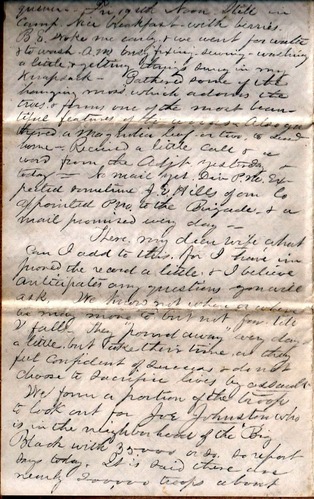 Noon Still in
Camp Nice breakfast with berries
B.E. woke me early & we went for water
& to wash. A.M. busy fixing sewing washing
a little & getting things snug in my
Knapsack - Gathered some of the
hanging moss which adorns the
trees & forms one of the most beau-
tiful features of the Also ga-
thered a Magnolia leaf or two to send
home - Received a little call & a
word from the Adjt yesterday &
today - No mail yet. Div P.M. Ex-
pected sometime J.E. Hills of our Co
appointed P.M. to the Brigade & a
mail promised every day -
There, my dear wife what
can I add to this, for I have im-
proved the record a little & I believe
anticipated any questions you will
ask. We know not when or where
we may move to but not far till
V falls. They pound away every day
a little, but take their time as they
feel confident of success & do not
choose to sacrifice lives by assault
We form a portion of the troops
to look out for Joe Johnston who
is in the neighborhood of the Big
Black with 35000 or so. so report
says today. It is said there are
nearly 300000 troops about